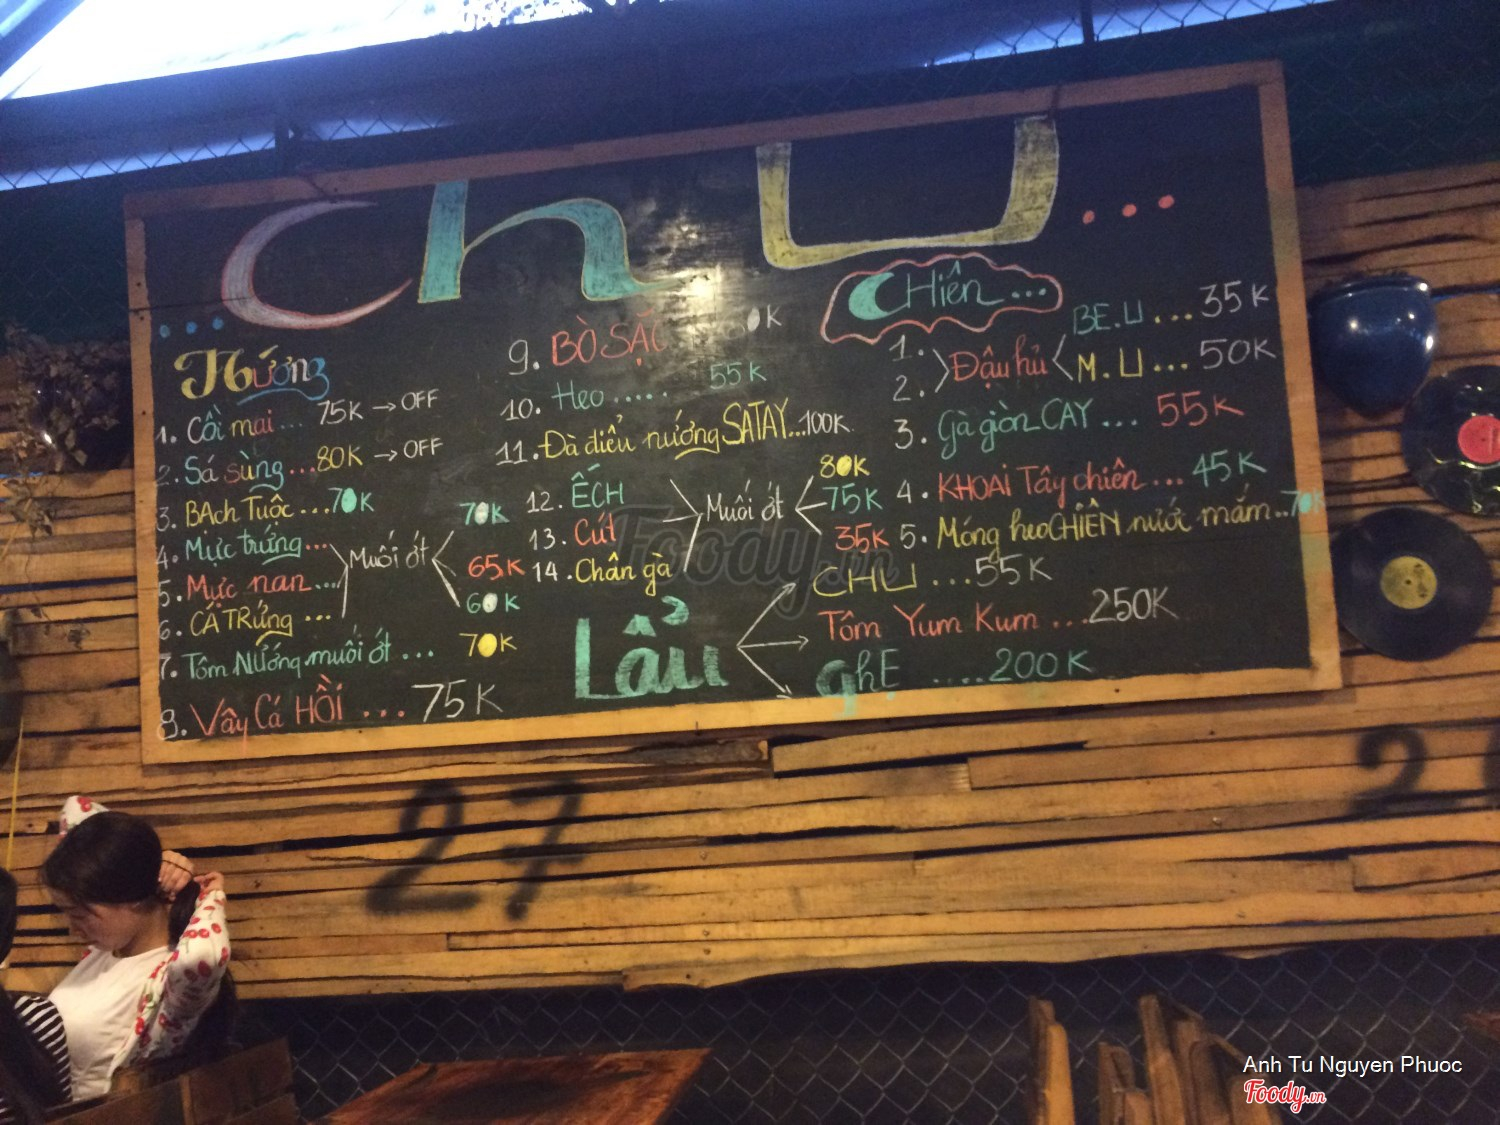 ... Chu ...
Nướng
1. Cồi mai ... 75K → OFF
2. Sá sùng ... 80K → OFF
3. BAch Tuộc ... 70K
4. Mực trứng ... 70K
5. Mực nan .... Muối ớt 65K
6. CÁ TRứng ... 60K
7. Tôm Nướng muối ớt ... 70K
8. Vây Cá HỒI ... 75K
9. BÒ
10. Heo ..... 55K
11. Đà điểu nướng SATAY...100K
12. ẾCH 80K
13. Cút Muối ớt 75K
14. Chân gà 35K
CHiên ...
1. BE.U ... 35K
2. Đậu hủ M.U ... 50K
3. Gà giòn CAY ... 55K
4. KHOAi Tây chiên ... 45K
5. Móng heo CHIÊN nước mắm .. 70K
Lẩu
CHU ... 55K
Tôm Yum Kum ... 250K
ghẸ ....200K
27
2
Foody.vn
Anh Tu Nguyen Phuoc
Foody.vn